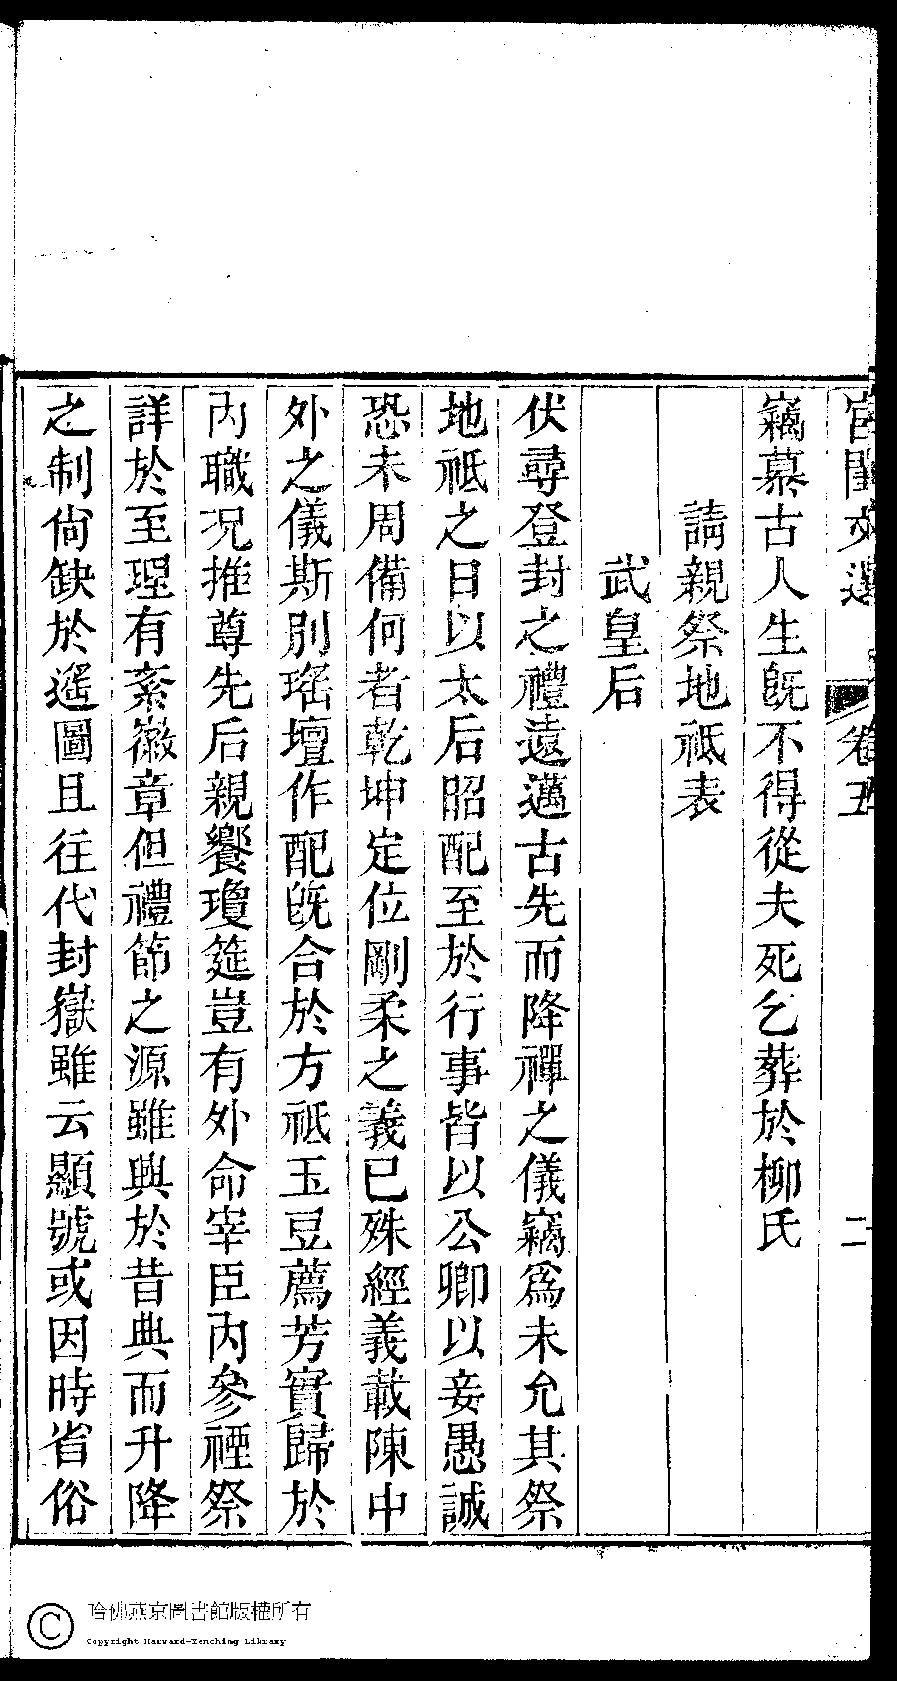 宮閨文選 卷五 二
竊慕古人生旣不得從夫死乞葬於柳氏
請親祭地祗表
武皇后
伏尋登封之禮遠邁古先而降禪之儀竊爲未允其祭
地祗之日以太后昭配至於行事皆以公卿以妾愚誠
恐未周備何者乾坤定位剛柔之義已殊經義載陳中
外之儀斯別瑤壇作配旣合於方祗玉豆薦芳實歸於
內職况推尊先后親饗瓊筵豈有外命宰臣內參禋祭
詳於至理有紊徽章但禮節之源雖興於昔典而升降
之制尙缺於遙圖且往代封嶽雖云顯號或因時省俗
哈佛燕京圖書館版權所有
Copyright Harvard-Yenching Library